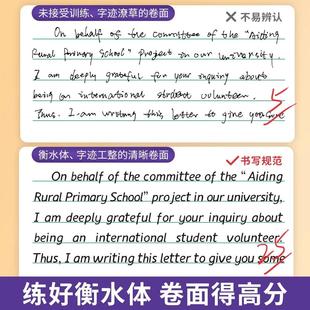 未接受训练、字迹潦草的卷面
✗不易辨认
On behalf of the committee of the "Aiding
Rural Primary School" project in our university,
I am deeply grateful for your inquiry about
being an international student volunteer.
Thus. I am writing this letter to give you some
5
衡水体、字迹工整的清晰卷面
✓书写规范
On behalf of the committee of the "Aiding
Rural Primary School" project in our university,
I am deeply grateful for your inquiry about
being an international student volunteer.
Thus, I am writing this letter to give you some
25
练好衡水体 卷面得高分